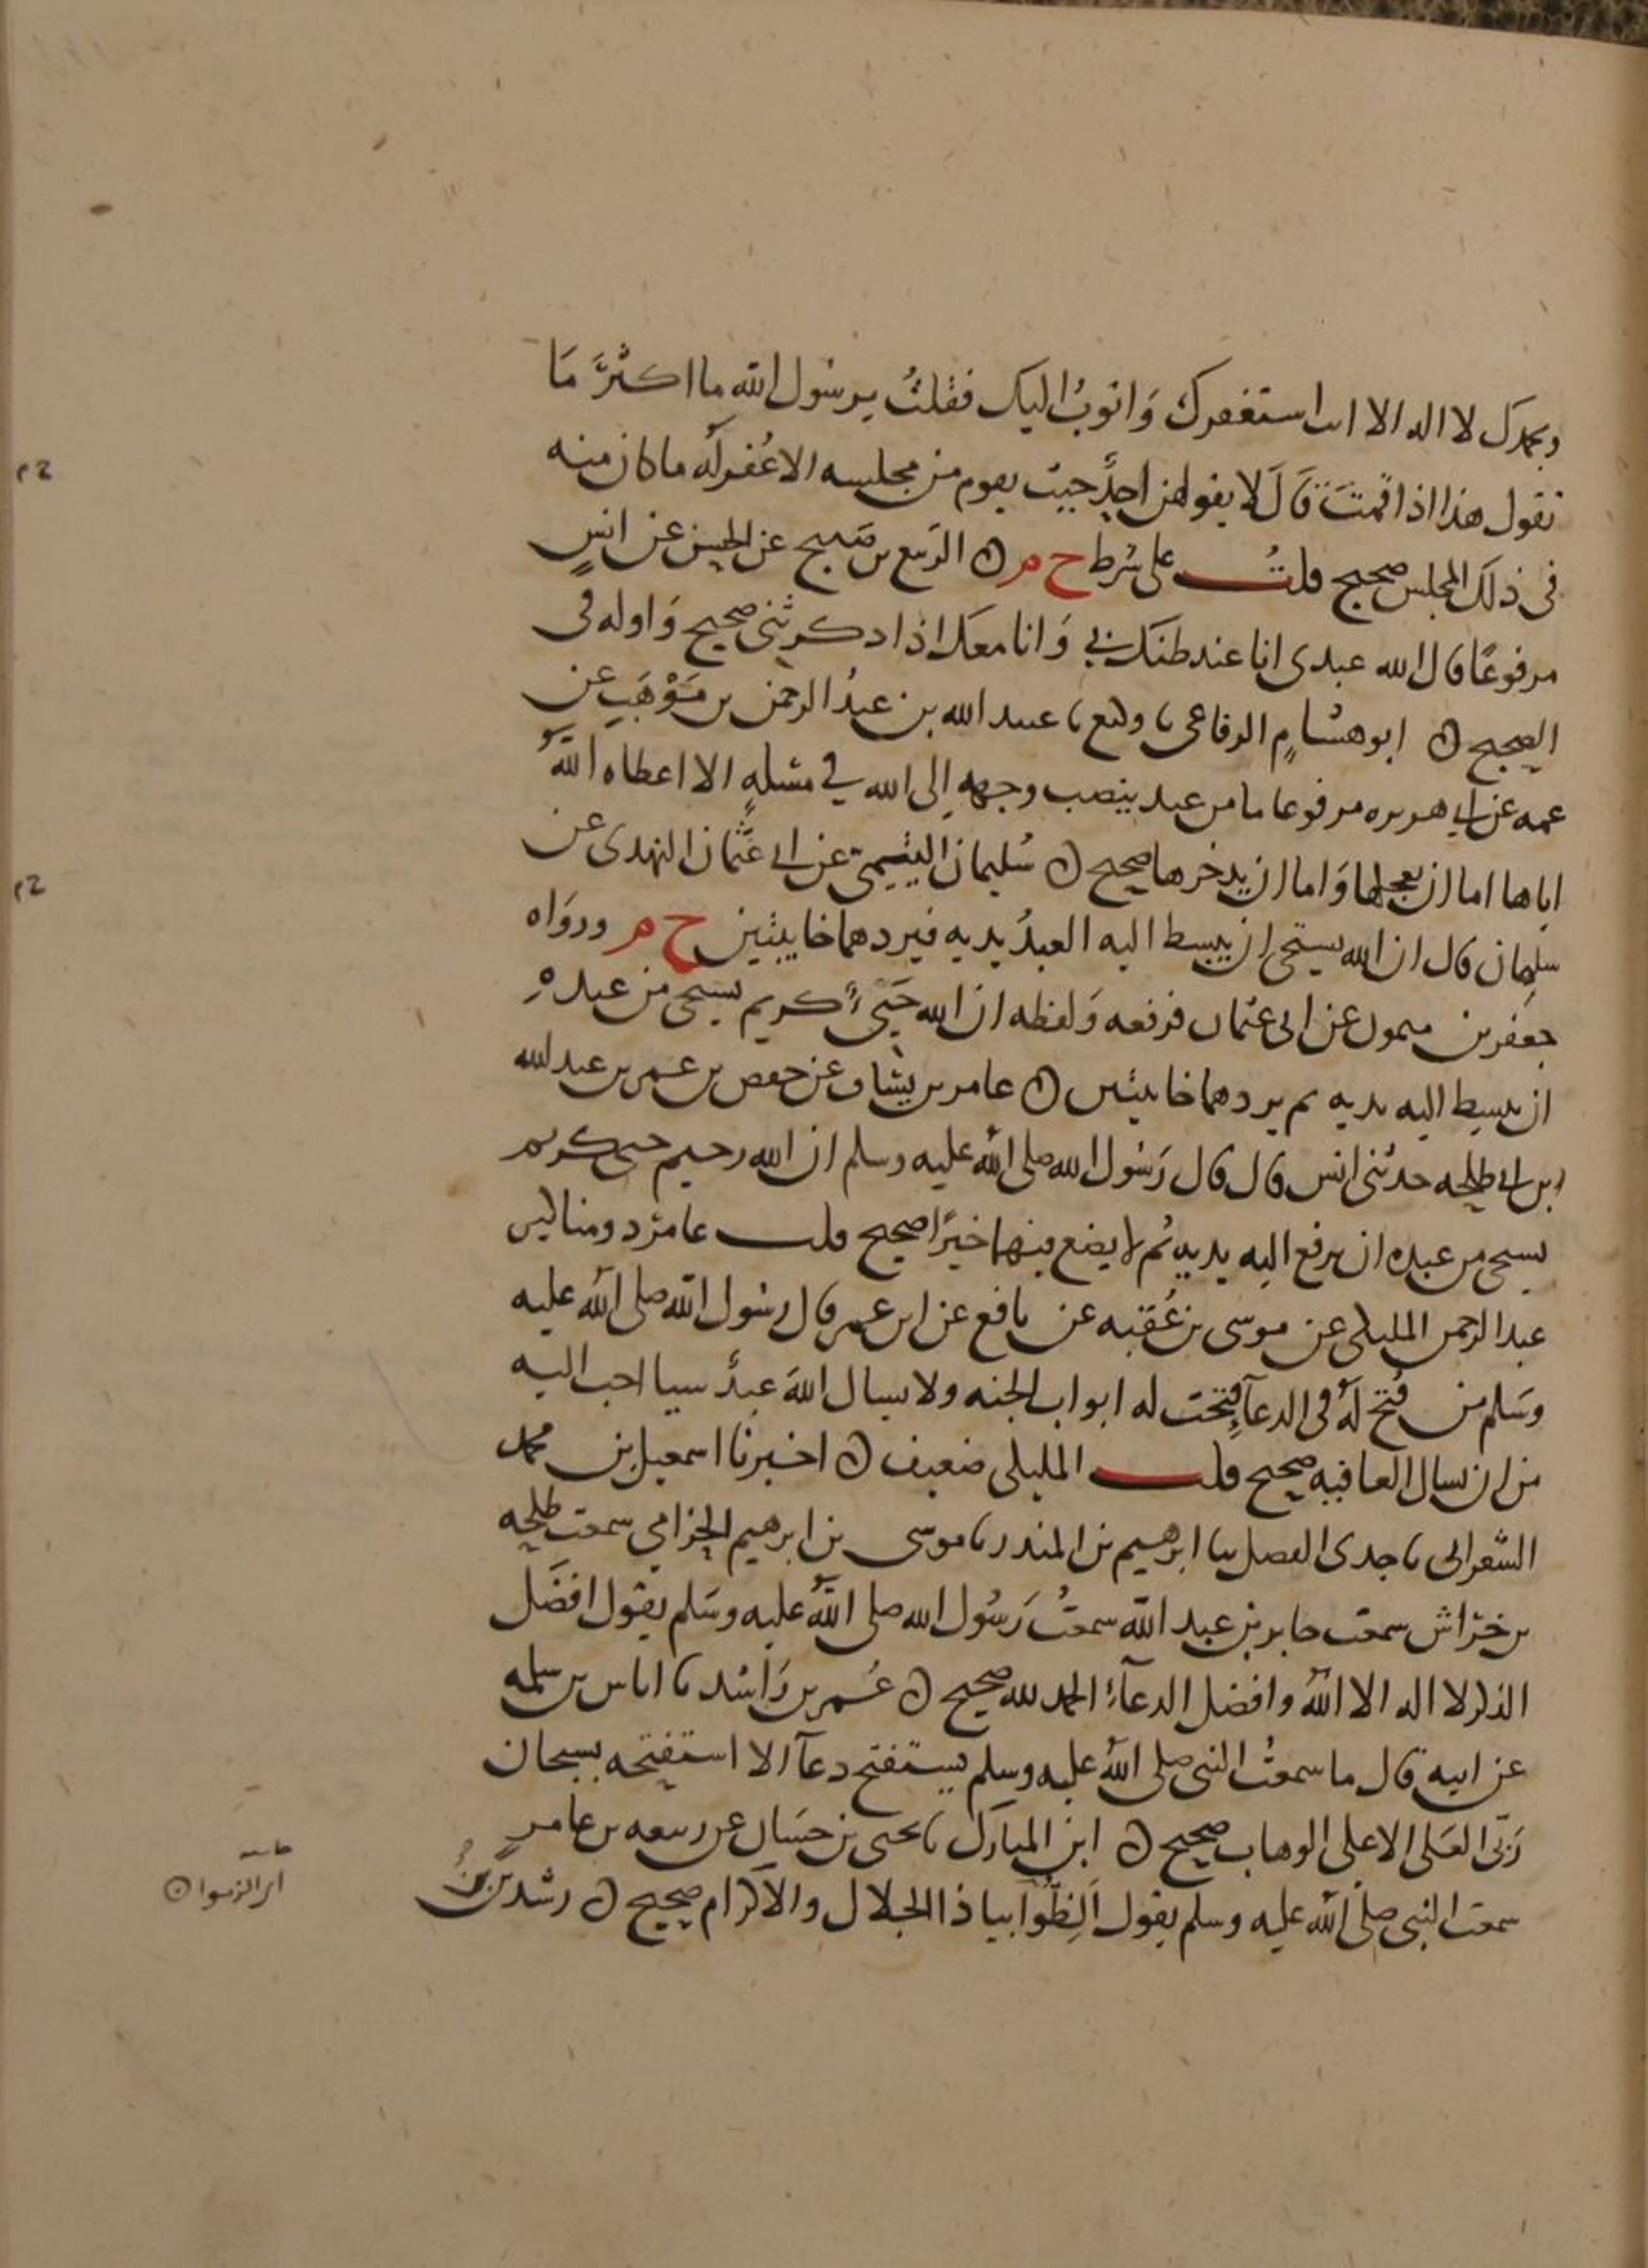 وبحمدك لا اله الا انت استغفرك وَاتوبُ اليك فقلتُ يرسُول الله ما اكثرَ مَا
تقول هذا اذا قمتَ قَالَ لا يقولهن احدٌ حيث يقوم من مجلسه الا غُفرلَه ما كان منه
فى ذلك المجلس صحيح قلتُ على شرط خ م ن الربيع بن صَبيح عن الحسن عن انسٍ
مرفوعًا قال الله عبدى انا عند ظنك بي وَانا معك اذا ذكرتنى صحيح وَاوله فى
الصحيح ن ابو هشامٍ الرفاعى نا وكيع نا عبيد الله بن عبدُ الرحمن بن مَوْهَبٍ عن
عمه عن ابي هريره مرفوعا ما من عبد ينصب وجهه إلى الله في مسئلهٍ الا اعطاه اللهُ
اياها اما ان يعجلها وَاما ان يدخرها صحيح ن سُليمان التيميّ عن ابى عثمان النهدى عن
سلمان قال ان الله يستحى ان يبسط اليه العبدُ يديه فيردهما خايبتين خ م ورواه
جعفر بن ميمون عن ابى عثمان فرفعه وَلفظه ان الله حَيىٌّ كريم يستحى من عبده
ان يبسط اليه يديه ثم يردهما خايبتين ن عامر بن يشاف عن حفص بن عمر بن عبد الله
ابن ابى طلحه حدثنى انس قال قال رَسُول الله صلى الله عليه وسلم ان الله رحيم حيى كريم
يستحى من عبده ان يرفع اليه يديه ثم لا يضع فيهما خيرًا صحيح قلت عامرٌ ذو مناكير
عبد الرحمن المليكى عن موسى بن عُقبه عن نافع عن ابن عمر قال رسُول الله صلى الله عليه
وسَلم من فُتح لَهُ فى الدعآ فتحت له ابواب الجنه ولا يسال اللهَ عبدٌ شيا احب اليه
من ان يسال العافيه صحيح قلت المليكى ضعيف ن اخبرنا اسمعيل بن محمد
الشعرانى نا جدى الفضل ثنا ابرهيم بن المنذر نا موسى بن ابرهيم الحزامي سمعت طلحه
بن خراش سمعت جابر بن عبد الله سمعتُ رَسُول الله صلى اللهُ عليه وسَلم يقول افضَل
الذكر لا اله الا اللهُ وافضل الدعآءِ الحمد لله صحيح ن عُمر بن رَاشد نا اياس بن سلمه
عن ابيه قال ما سمعتُ النبى صلى الله عليه وسلم يستفتح دعآ الا استفتحه بسبحان
رَبّى العَلى الاعلى الوهاب صحيح ن ابن المبارك نا يحيى بن حسَان عن ربيعه بن عامرٍ
سمعت النبى صلى الله عليه وسلم يقول اَلِظُّوا بيا ذا الجلال والاكرام صحيح ن رشدين بن